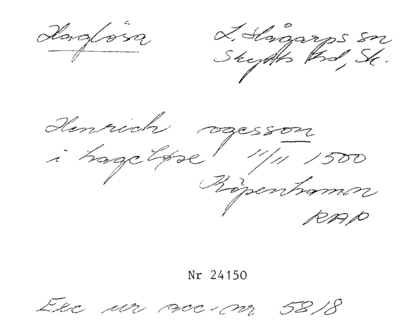 Haglösa L. Slågarps sn
Skytts hd, Sk.
Henrich ogesson
i hageløse 11/11 1500
Köpenhamn
RAP
Nr 24150
Exc ur acc. nr 5818